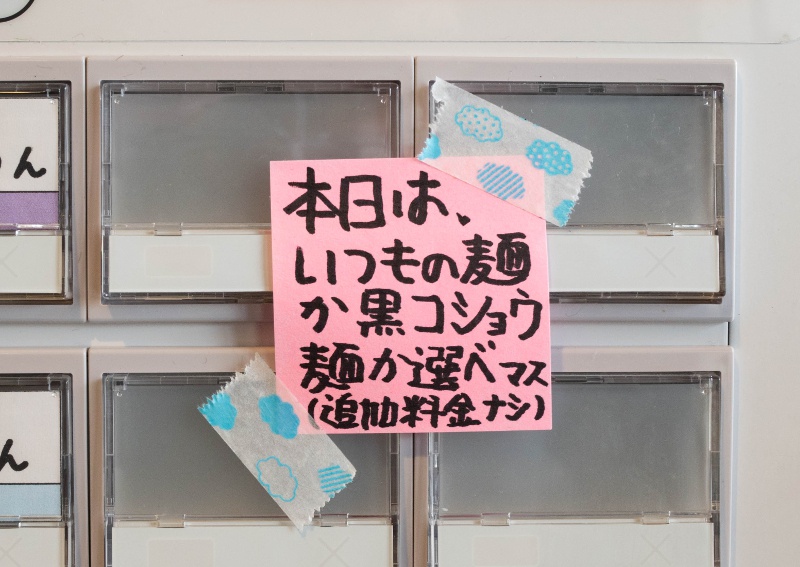 本日は、
いつもの麺
か黒コショウ
麺か選べマス
(追加料金ナシ)
ん
ん